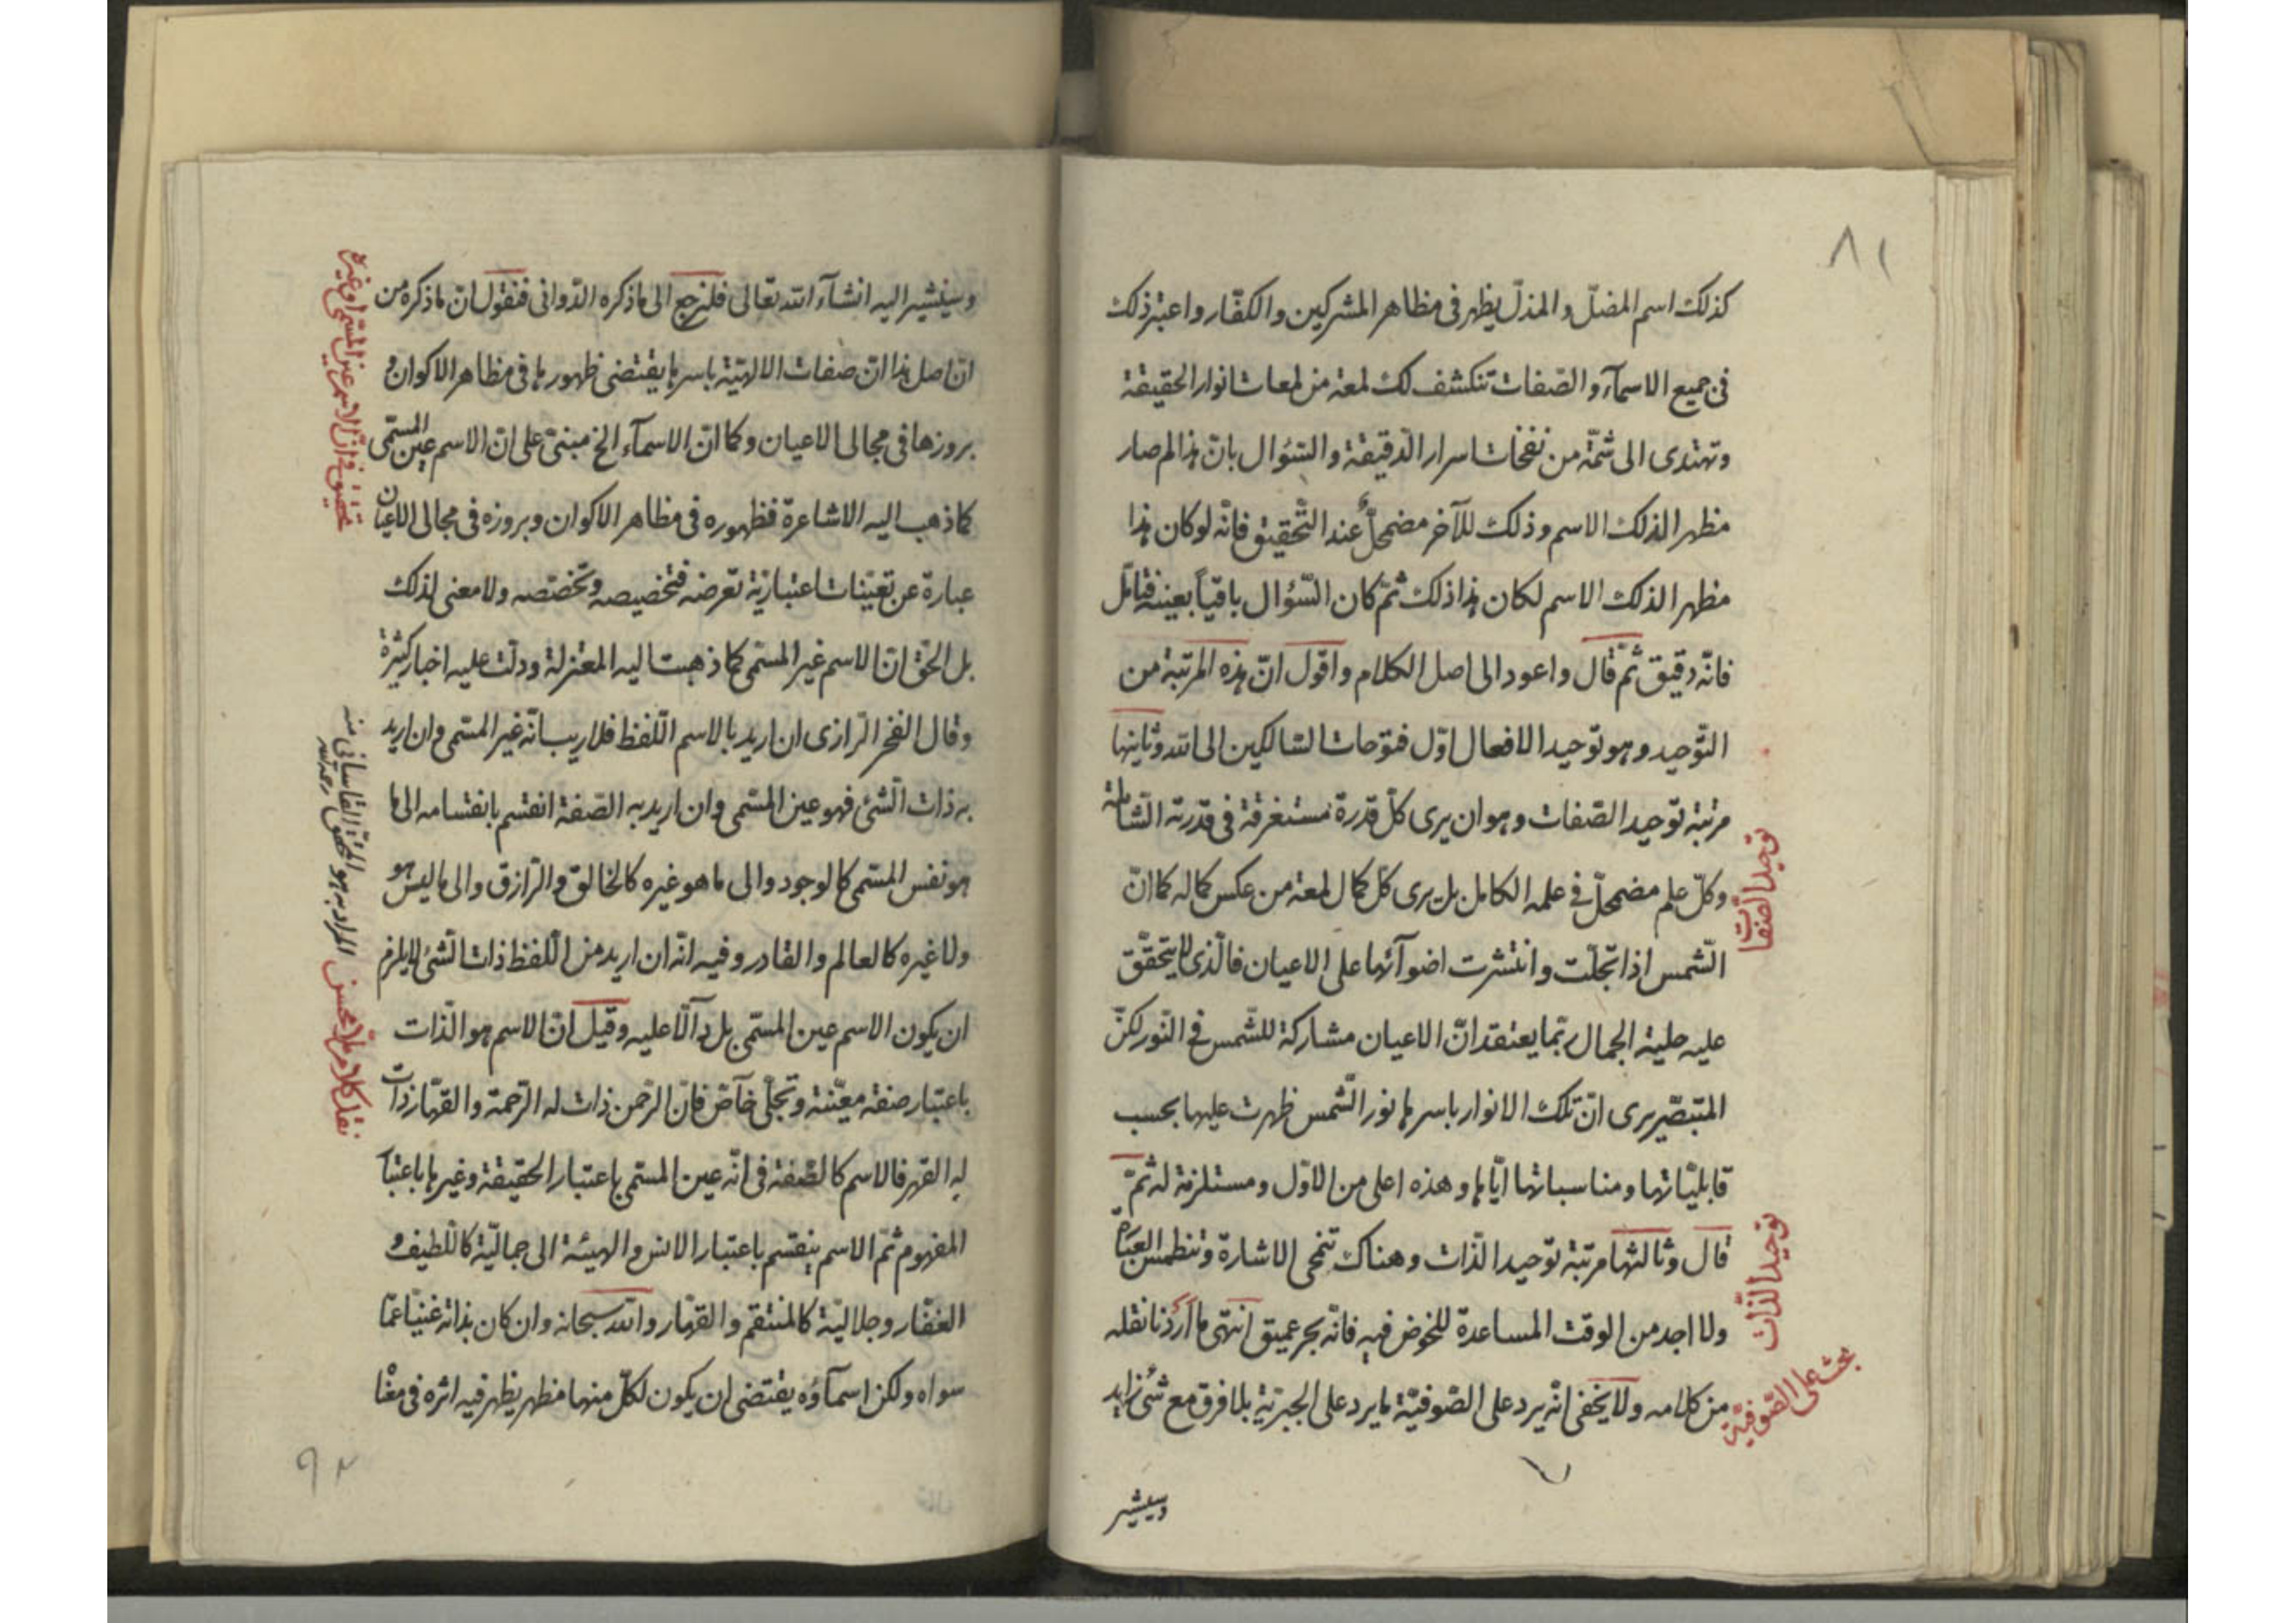 ٨١
كذلك اسم المضلّ و المذلّ يظهر فى مظاهر المشركين و الكفّار و اعتبر ذلك
فى جميع الاسمآء و الصّفات تنكشف لك لمعة من لمعات انوار الحقيقة
و تهتدى الى شمّة من نفخات اسرار الدّقيقة و السّؤال بانّ هذا لم صار
مظهرا لذلك الاسم و ذلك للآخر مضمحلّ عند التّحقيق فانّه لو كان هذا
مظهرا لذلك الاسم لكان هذا ذلك ثمّ كان السّؤال باقياً بعينه فتامّل
فانّه دقيق ثمّ قال و اعود الى اصل الكلام و اقول انّ هذه المرتبة من
التّوحيد و هو توحيد الافعال اوّل فتوحات السّالكين الى الله و ثانيها
مرتبة توحيد الصّفات و هو ان يرى كلّ قدرة مستغرقة فى قدرته الشّاملة
و كلّ علم مضمحلّ فى علمه الكامل بل يرى كلّ كمال لمعة من عكس كماله كما انّ
الشّمس اذا تجلّت و انتشرت اضوآئها على الاعيان فالّذى لا يتحقّق
عليه حلية الجمال ربّما يعتقد انّ الاعيان مشاركة للشّمس فى النّور لكنّ
المتبصّر يرى انّ تلك الانوار باسرها نور الشّمس ظهرت عليها بحسب
قابليّاتها و مناسباتها ايّاها و هذه اعلى من الاوّل و مستلزمة له ثمّ
قال و ثالثها مرتبة توحيد الذّات و هناك تنمحى الاشارة و تنطمس العبارة
و لا اجد من الوقت المساعدة للخوض فيه فانّه بحر عميق انتهى ما اردنا نقله
من كلامه و لا يخفى انّه يرد على الصّوفيّة ما يرد على الجبريّة بلا فرق مع شئ زايد
توحيد الصّفات
توحيد الذّات
بحث على الصّوفيّة
وسيشير
و سيشير اليه انشآء الله تعالى فلنرجع الى ما ذكره الدّوانى فنقول انّ ما ذكره من
انّ اصل هذا انّ صفات الالهيّة باسرها يقتضى ظهورها فى مظاهر الاكوان و
بروزها فى مجالى الاعيان و كما انّ الاسمآء الخ مبنىّ على انّ الاسم عين المسمّى
كما ذهب اليه الاشاعرة فظهوره فى مظاهر الاكوان و بروزه فى مجالى الاعيان
عبارة عن تعيّنات اعتباريّة تعرضه فتخصيصه و تخصّصه و لا معنى لذلك
بل الحقّ انّ الاسم غير المسمّى كما ذهبت اليه المعتزلة و دلّت عليه اخبار كثيرة
و قال الفخر الرّازى ان اريد بالاسم اللّفظ فلا ريب انّه غير المسمّى و ان اريد
به ذات الشّئ فهو عين المسمّى و ان اريد به الصّفة انقسم بانقسامه الى ما
هو نفس المسمّى كالوجود و الى ما هو غيره كالخالق و الرّازق و الى ما ليس هو
و لا غيره كالعالم و القادر و فيه انّه ان اريد من اللّفظ ذات الشّئ لا يلزم
ان يكون الاسم عين المسمّى بل دآلّا عليه و قيل انّ الاسم هو الذّات
باعتبار صفة معيّنة و تجلّى خآصّ فانّ الرّحمن ذات له الرّحمة و القهّار ذات
له القهر فالاسم كالصّفة فى انّه عين المسمّى باعتبار الحقيقة و غيرها باعتبار
المفهوم ثمّ الاسم ينقسم باعتبار الانس و الهيئة الى جماليّة كاللّطيف و
الغفّار و جلاليّة كالمنتقم و القهّار و الله سبحانه و ان كان بذاته غنيّا عمّا
سواه و لكن اسمآؤه يقتضى ان يكون لكلّ منها مظهر يظهر فيه اثره فى
تحقيق فى انّ الاسم عين المسمّى او غيره
نقل كلام ملّا محسن
المراد به هو المحقّق القاسانى منه رحمه الله
٩٢